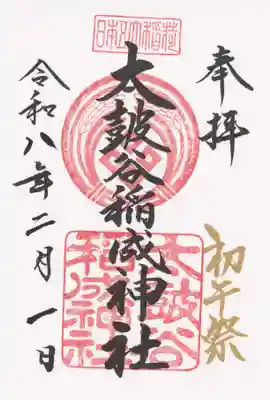 奉拝
初午祭
日本五大稲荷
太皷谷稲成神社
太皷谷
稲成神社
令和八年二月一日